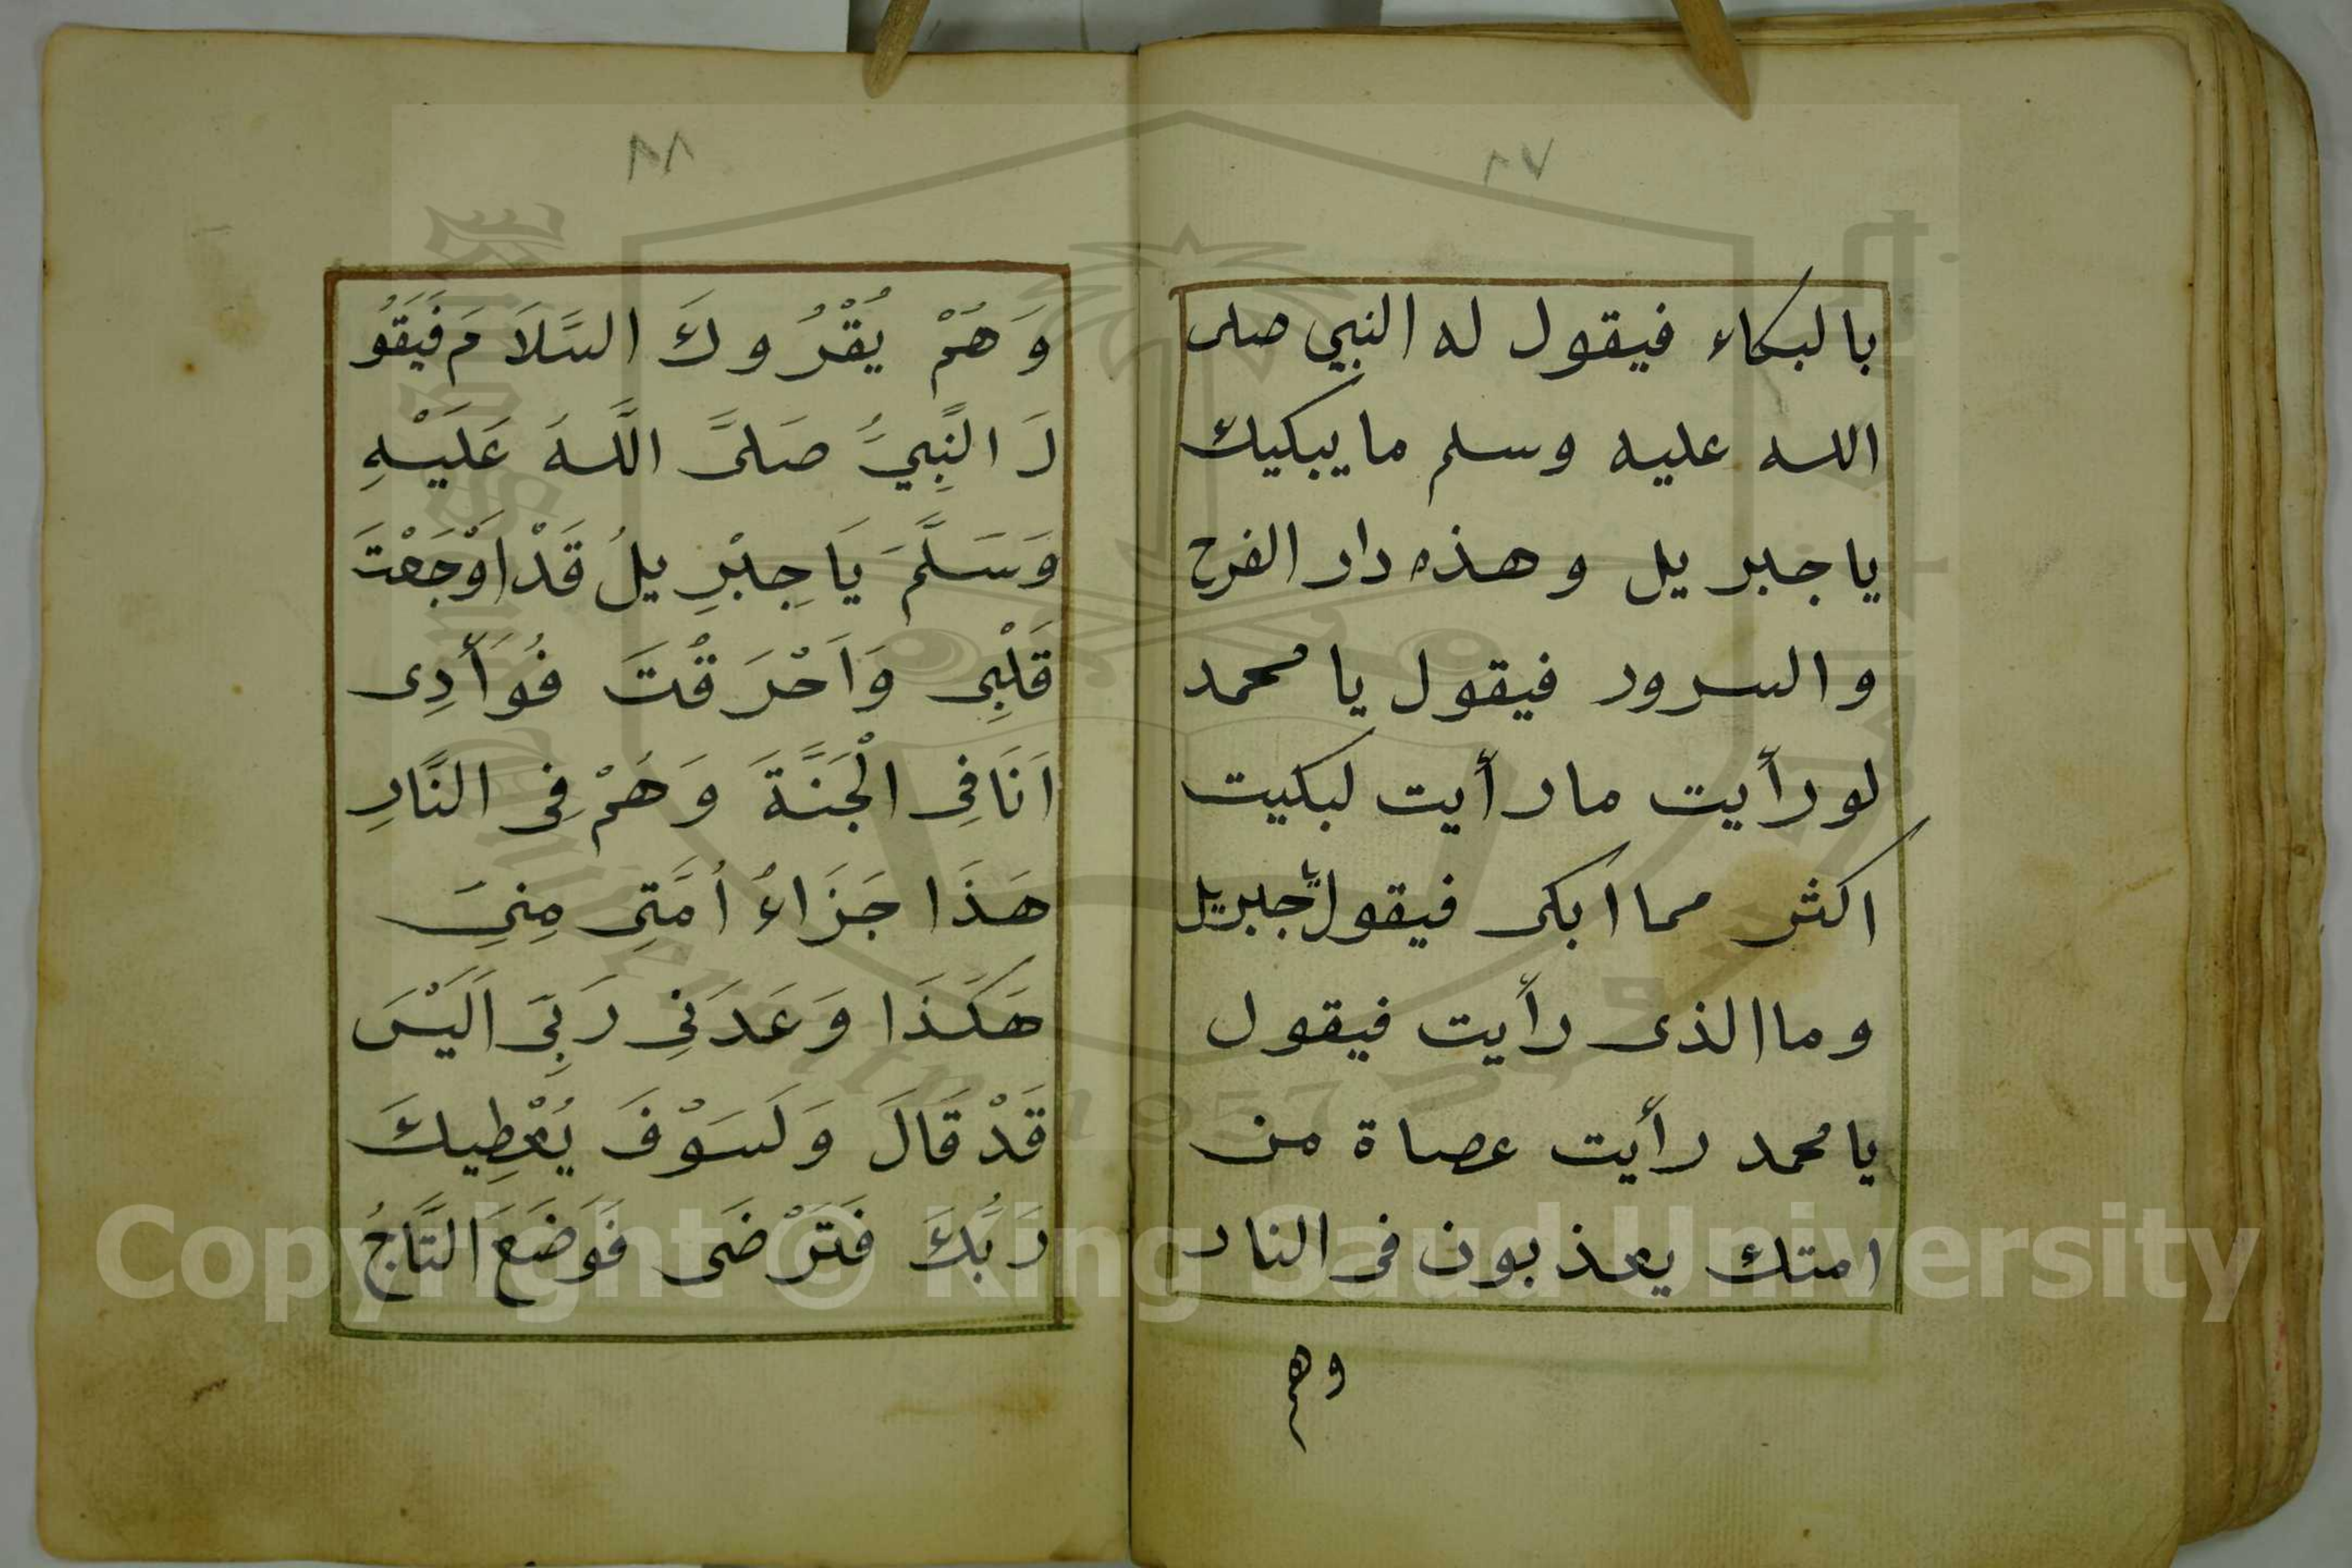 ٨٧
بالبكاء فيقول له النبي صلى
الله عليه وسلم ما يبكيك
يا جبريل وهذه دار الفرح
والسرور فيقول يا محمد
لو رأيت ما رأيت لبكيت
اكثر مما ابكى فيقول يا جبريل
وما الذى رأيت فيقول
يا محمد رأيت عصاة من
امتك يعذبون فى النار
وهم
٨٨
وَهُمْ يُقْرُوكَ السَّلَامَ فَيَقُو
لَ النَّبِيُّ صَلَّى اللَّهَ عَلَيْهِ
وَسَلَّمَ يَا جِبْرِيلُ قَدْ اَوْجَعْتَ
قَلْبِى وَاَحْرَقْتَ فُوَأَدِى
اَنَا فِى الْجَنَّةَ وَهَمْ فِى النَّارِ
هَذَا جَزَاءُ اُمَّتِى مِنِى
هَكَذَا وَعَدَنِى رَبِّى اَلَيْسَ
قَدْ قَالَ وَلَسَوْفَ يُعْطِيكَ
رَبُّكَ فَتَرْضَى فَوَضَعَ التَّاجُ
Copyright © King Saud University
1957